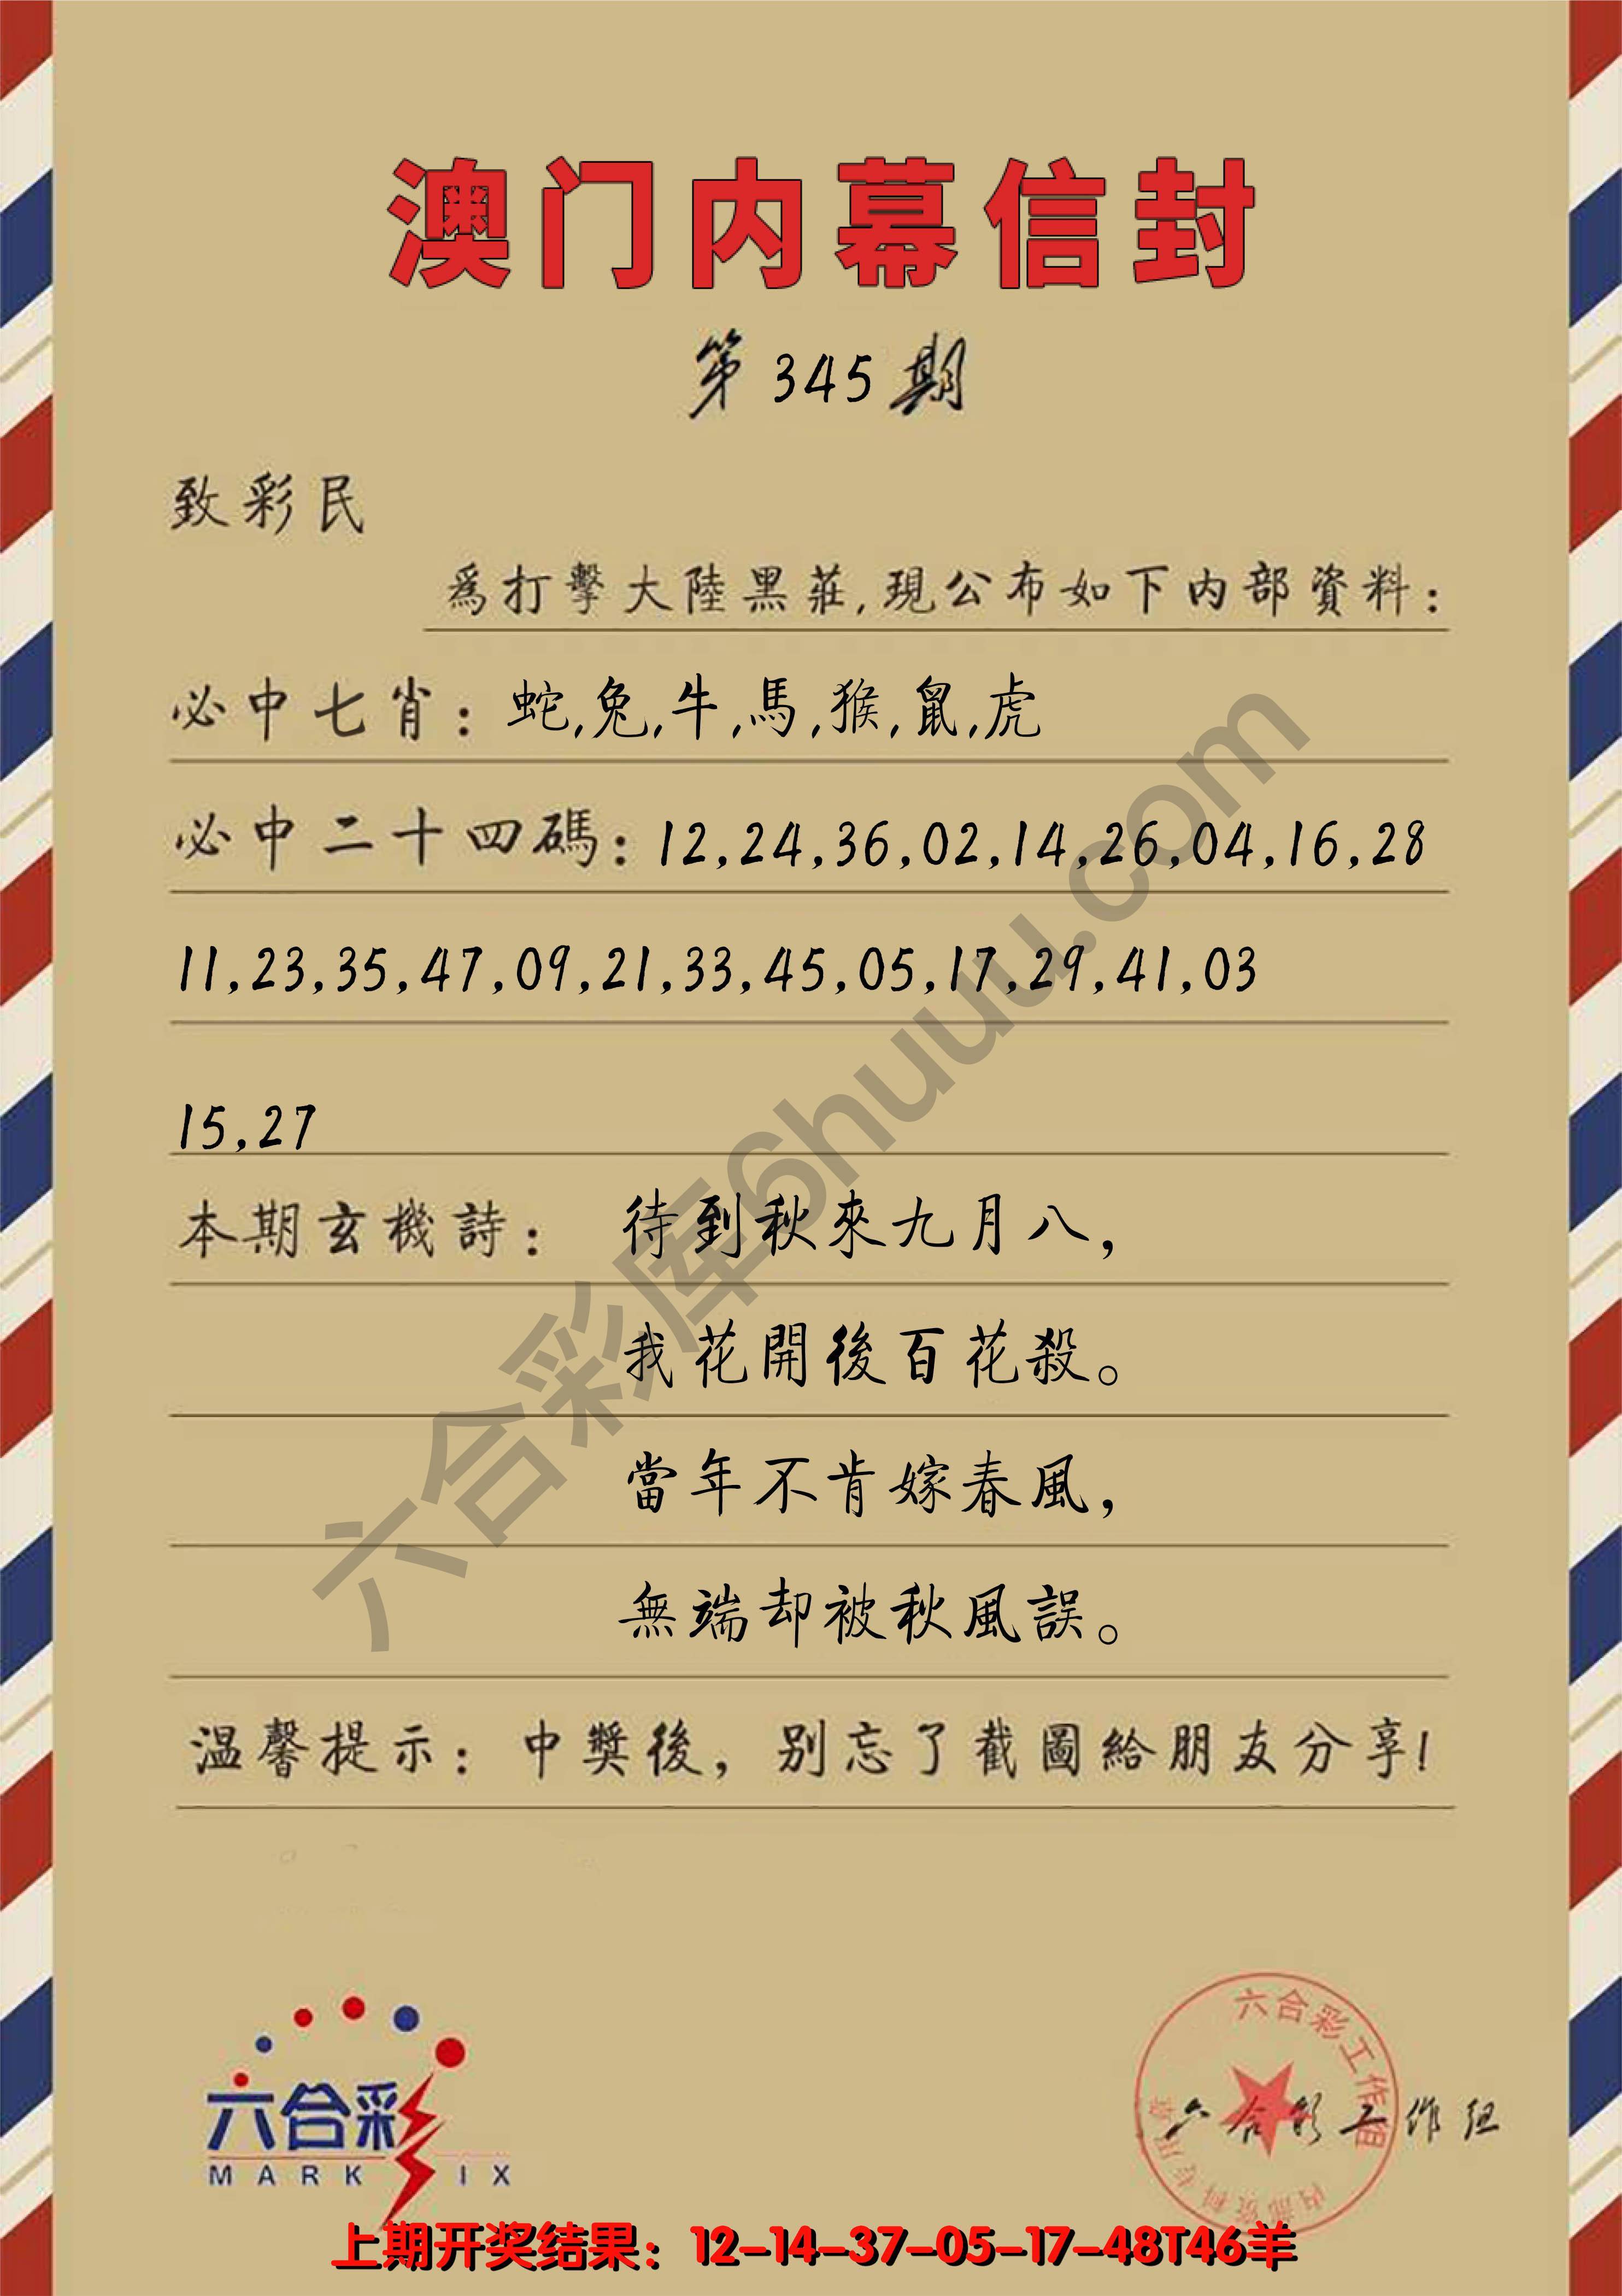 澳门内幕信封
第345期
致彩民
爲打擊大陸黑莊,現公布如下内部資料:
必中七肖:蛇,兔,牛,馬,猴,鼠,虎
必中二十四碼:12,24,36,02,14,26,04,16,28
11,23,35,47,09,21,33,45,05,17,29,41,03
15,27
本期玄機詩: 待到秋來九月八,
我花開後百花殺。
當年不肯嫁春風,
無端却被秋風誤。
温馨提示:中獎後,别忘了截圖給朋友分享!
六合彩库6huuu.com
六合彩
MARK IX
六合彩工作组
内部资料专用章
六合彩工作组
上期开奖结果:12-14-37-05-17-48T46羊